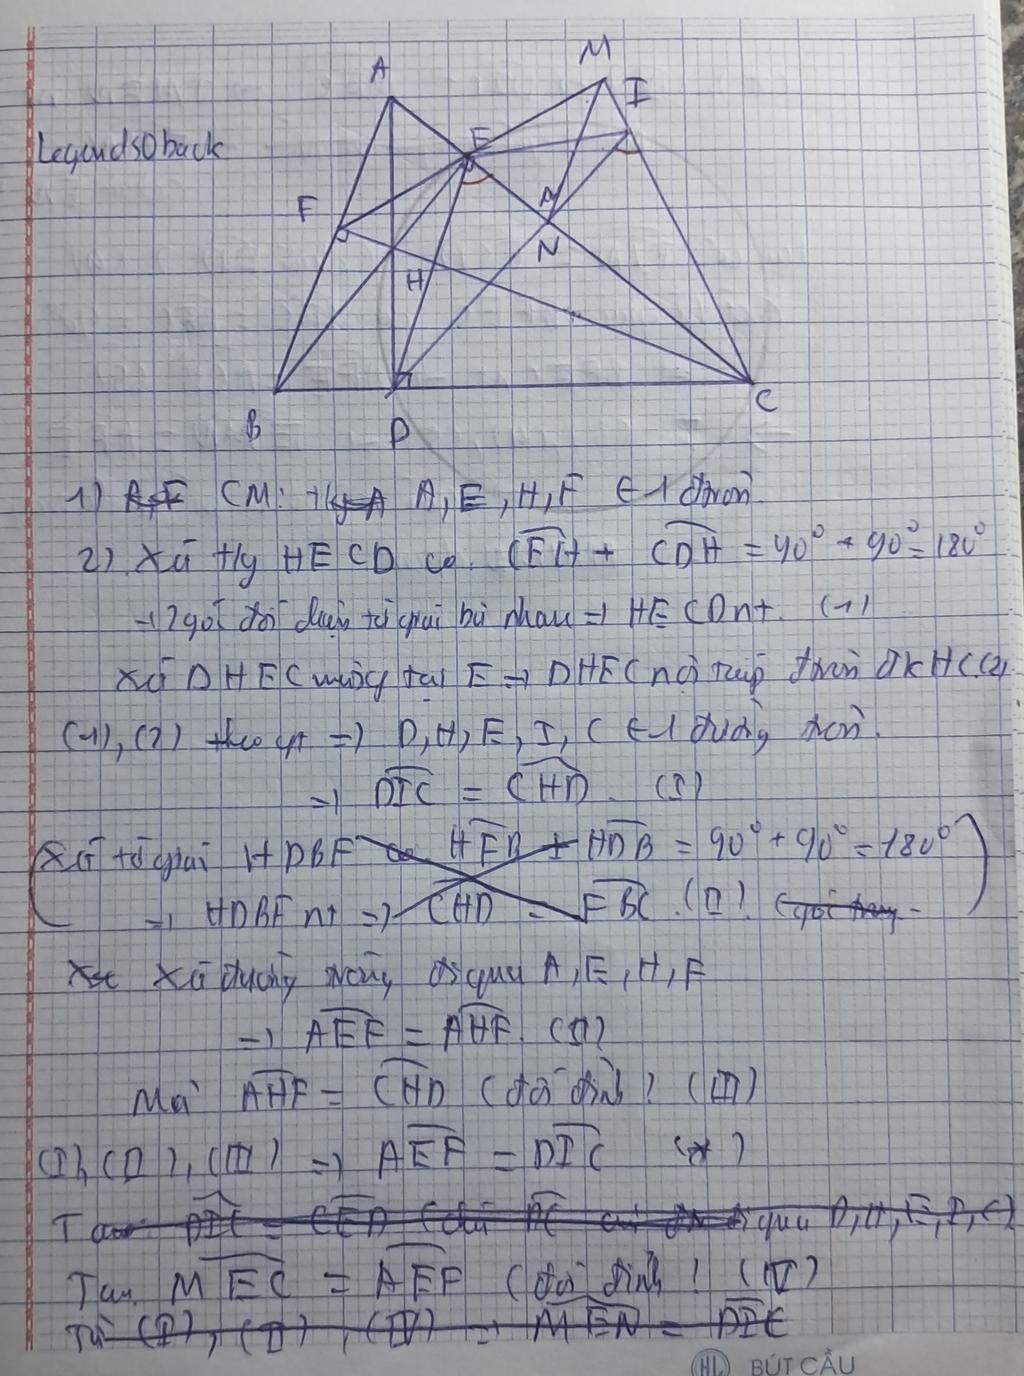 A
M
I
Legends0back
E
F
N
H
B
D
C
1) CM: A, E, H, F ∈ 1 đtròn
2) Xét tg HECD có. CEH + CDH = 90° + 90° = 180°
→ 2 góc đối diện tứ giác bù nhau => HECD nt. (1)
Xét DHEC vuông tại E => DHEC nội tiếp đtròn ĐK HC (2)
(1), (2) => D, H, E, I, C ∈ 1 đường tròn.
=> DIC = CHD. (I)
(Xét tứ giác HDBF có HFB + HDB = 90° + 90° = 180°
=> HDBF nt => CHD = FBC. (II).
Xét đường tròn đi qua A, E, H, F
=> AEF = AHF. (II)
Mà AHF = CHD (đối đỉnh) (III)
(I), (II), (III) => AEF = DIC (*)
Ta có DIC = CED qua D, H, E, I, C)
Ta có MEC = AEF (đối đỉnh) (IV)
Từ (I), (II), (IV) => MEN = DIC
HL BÚT CẦU